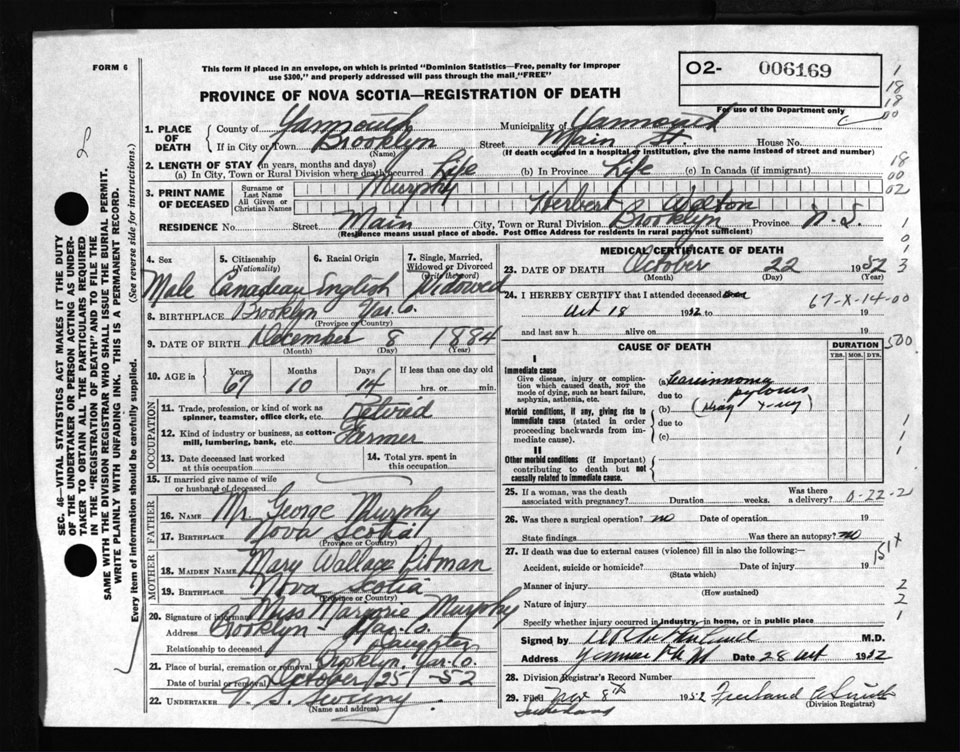 FORM 6
This form if placed in an envelope, on which is printed "Dominion Statistics—Free, penalty for improper
use $300," and properly addressed will pass through the mail "FREE"
O2- 006169
For use of the Department only
PROVINCE OF NOVA SCOTIA—REGISTRATION OF DEATH
1. PLACE OF DEATH County of Yarmouth Municipality of Yarmouth
If in City or Town Brooklyn (Name) Street Main St. House No.
(If death occurred in a hospital or institution, give the name instead of street and number)
2. LENGTH OF STAY (in years, months and days)
(a) In City, Town or Rural Division where death occurred Life (b) In Province Life (c) In Canada (if immigrant)
3. PRINT NAME OF DECEASED Surname or Last Name Murphy
All Given or Christian Names Herbert Walton
RESIDENCE No. Street Main City, Town or Rural Division Brooklyn Province N.S.
(Residence means usual place of abode. Post Office Address for residents in rural parts not sufficient)
4. Sex 5. Citizenship (Nationality) 6. Racial Origin 7. Single, Married, Widowed or Divorced (write the word)
Male Canadian English Widowed
8. BIRTHPLACE Brooklyn Yar. Co.
(Province or Country)
9. DATE OF BIRTH December 8 1884
(Month) (Day) (Year)
10. AGE in Years Months Days If less than one day old
67 10 14 hrs. or min.
OCCUPATION
11. Trade, profession, or kind of work as spinner, teamster, office clerk, etc. Retired
12. Kind of industry or business, as cotton-mill, lumbering, bank, etc. Farmer
13. Date deceased last worked at this occupation
14. Total yrs. spent in this occupation
15. If married give name of wife or husband of deceased
FATHER
16. Name Mr. George Murphy
17. Birthplace Nova Scotia
(Province or Country)
MOTHER
18. Maiden Name Mary Wallace Pitman
19. Birthplace Nova Scotia
(Province or Country)
20. Signature of informant Miss Marjorie Murphy
Address Brooklyn Yar. Co.
Relationship to deceased Daughter
21. Place of burial, cremation or removal Brooklyn, Yar. Co.
Date of burial or removal October 25 - 52
22. UNDERTAKER V. S. Sweeny
(Name and address)
MEDICAL CERTIFICATE OF DEATH
23. DATE OF DEATH October 22 1952
(Month) (Day) (Year)
24. I HEREBY CERTIFY that I attended deceased
Oct 18 1952 to 19
67-X-14-00
and last saw h alive on 19
CAUSE OF DEATH DURATION
YRS. MOS. DYS.
I
Immediate cause
Give disease, injury or complication which caused death, not the mode of dying, such as heart failure, asphyxia, asthenia, etc.
(a)
due to pylorus
Morbid conditions, if any, giving rise to immediate cause (stated in order proceeding backwards from immediate cause).
(b) X-ray
due to
(c)
II
Other morbid conditions (if important) contributing to death but not causally related to immediate cause.
25. If a woman, was the death associated with pregnancy? Duration weeks. Was there a delivery? 0-22-2
26. Was there a surgical operation? no Date of operation 19
State findings Was there an autopsy? no
27. If death was due to external causes (violence) fill in also the following:— 151X
Accident, suicide or homicide? Date of injury 19
(State which)
Manner of injury
(How sustained)
Nature of injury
Specify whether injury occurred in Industry, in home, or in public place
Signed by M.D.
Address Date 28 Oct 1952
28. Division Registrar's Record Number
29. Filed Nov 8th 1952
(Division Registrar)
SEC. 46—VITAL STATISTICS ACT MAKES IT THE DUTY
OF THE UNDERTAKER OR PERSON ACTING AS UNDER-
TAKER TO OBTAIN ALL THE PARTICULARS REQUIRED
IN THE "REGISTRATION OF DEATH" AND TO FILE THE
SAME WITH THE DIVISION REGISTRAR WHO SHALL ISSUE THE BURIAL PERMIT.
WRITE PLAINLY WITH UNFADING INK. THIS IS A PERMANENT RECORD.
Every item of information should be carefully supplied. (See reverse side for instructions.)
2
1
18
18
00
18
00
02
1
0
1
3
500
1
1
1
2
2
1